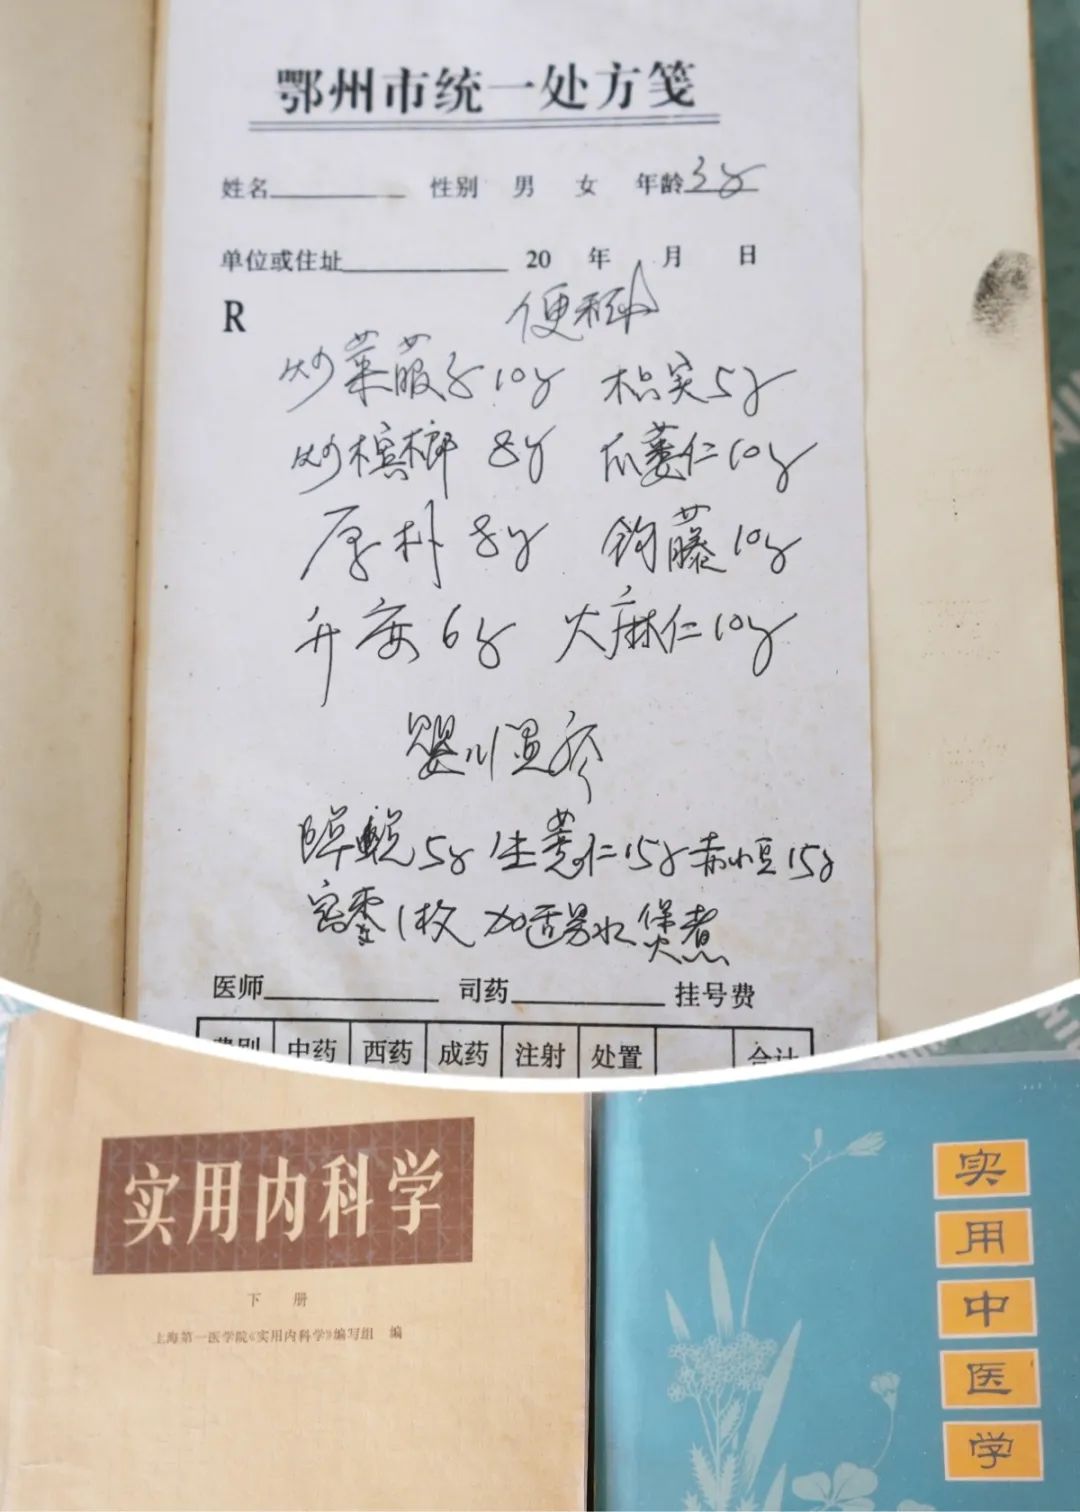 鄂州市统一处方笺
姓名 性别 男 女 年龄 3岁
单位或住址 20 年 月 日
R 便秘
炒莱菔子10g 枳实5g
炒槟榔 8g 瓜蒌仁10g
厚朴 8g 钩藤10g
升麻6g 火麻仁10g
婴儿湿疹
蝉蜕5g 生薏仁15g 赤小豆15g
1枚 加适量水煲煮
医师 司药 挂号费
费别 中药 西药 成药 注射 处置 合计
实用内科学
下册
上海第一医学院《实用内科学》编写组 编
实用中医学